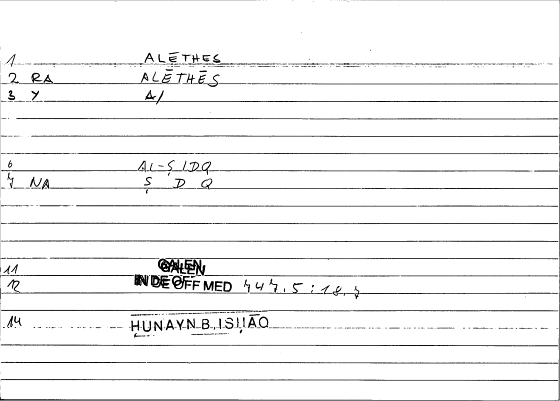 1 ALĒTHES
2 RA ALĒTHĒS
3 Y A/
6 AL-ṢIDQ
7 NA Ṣ D Q
11 GALEN
12 IN DE OFF MED 447.5:18.7
14 ḤUNAYN B. ISḤĀQ